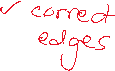 ✓ correct
edges